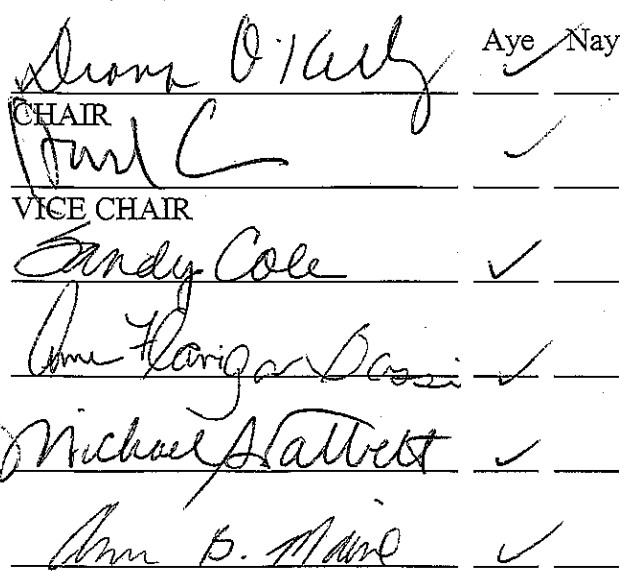 Aye Nay
Diana O'Kelly ✓
CHAIR
✓
VICE CHAIR
Sandy Cole ✓
Anne Flanigan Bassi ✓
Michael Talbett ✓
Ann B. Maine ✓